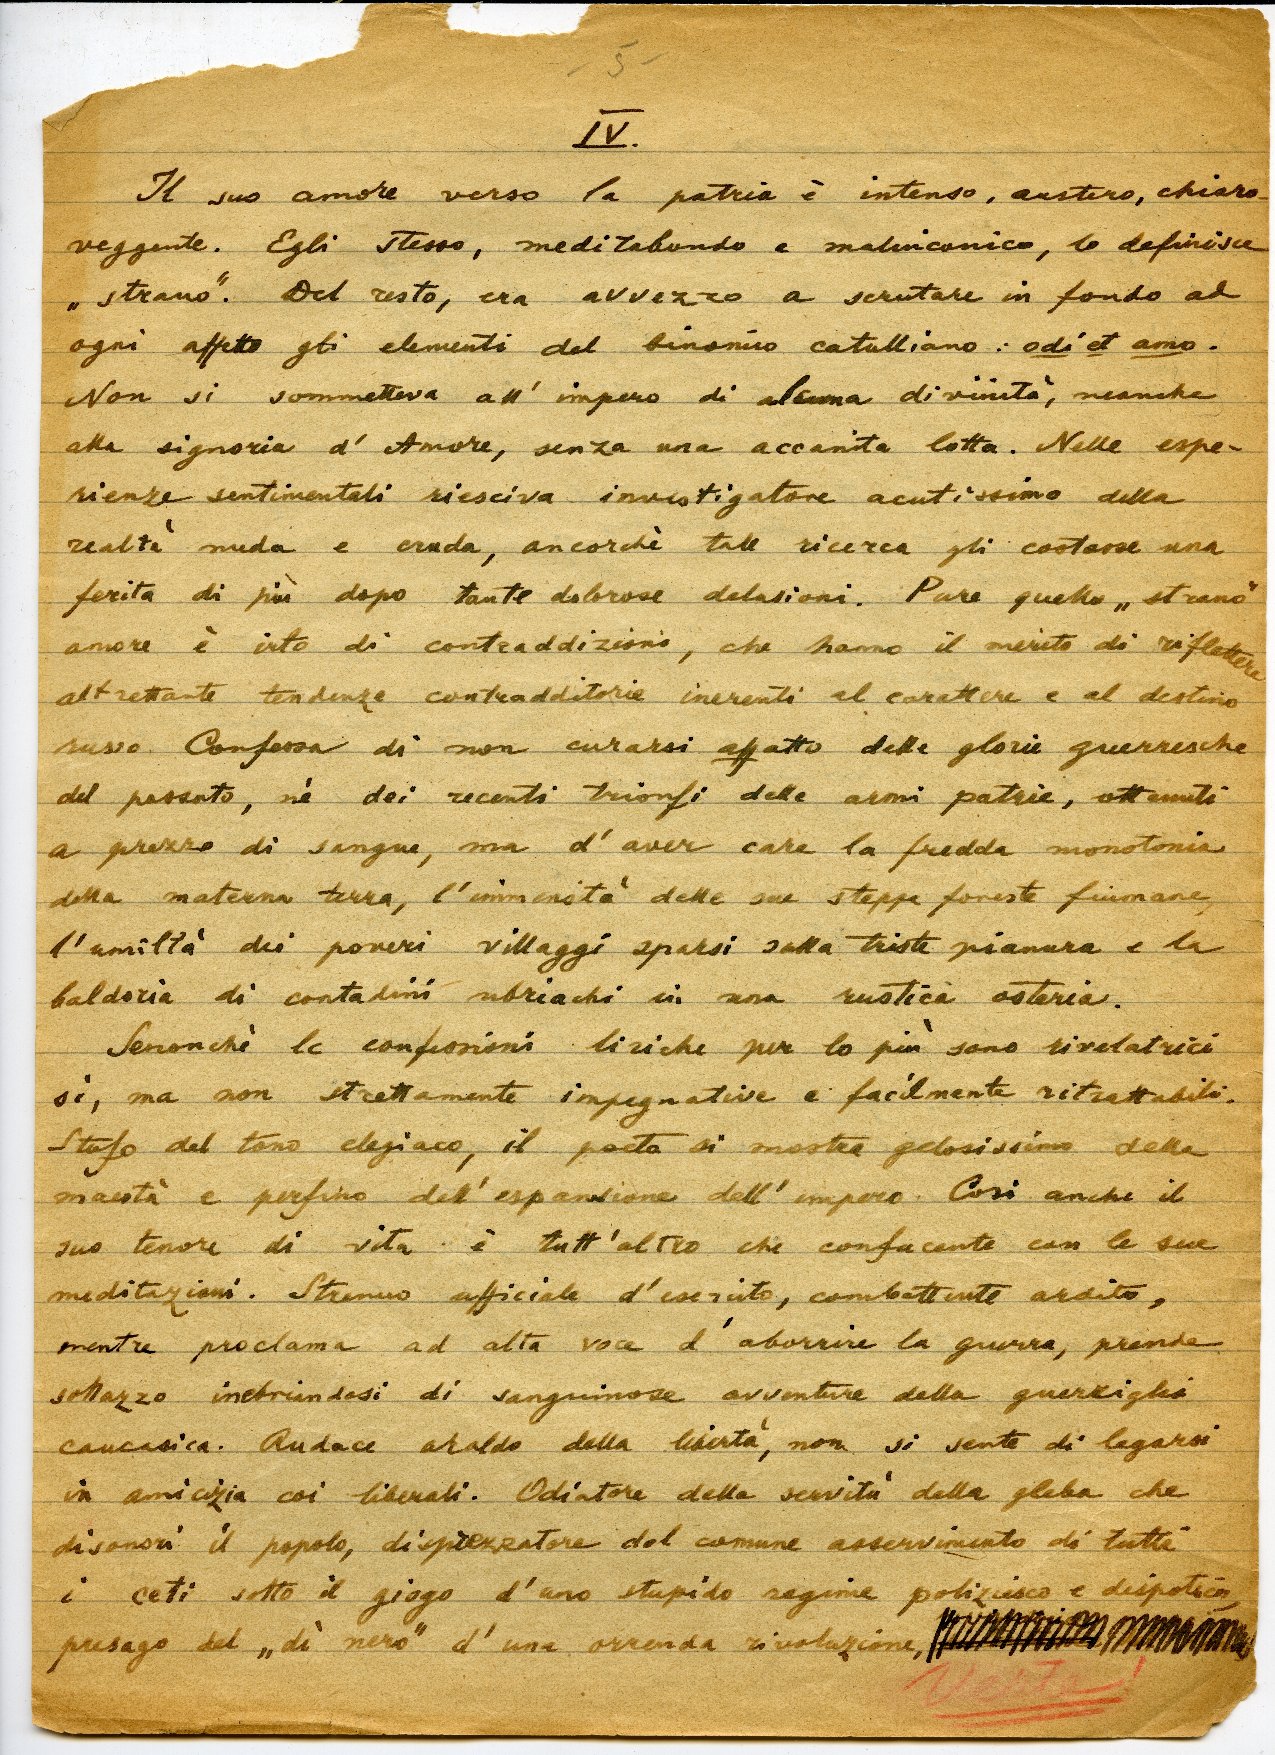 - 5 -
IV.
Il suo amore verso la patria è intenso, austero, chiaro-
veggente. Egli stesso, meditabondo e malinconico, lo definisce
„strano". Del resto, era avvezzo a scrutare in fondo ad
ogni affetto gli elementi del binomio catulliano: odi et amo.
Non si sommetteva all'impero di alcuna divinità, neanche
alla signoria d'Amore, senza una accanita lotta. Nelle espe-
rienze sentimentali riesciva investigatore acutissimo della
realtà nuda e cruda, ancorchè tale ricerca gli costasse una
ferita di più dopo tante dolorose delusioni. Pure quello „strano"
amore è irto di contraddizioni, che hanno il merito di riflettere
altrettante tendenze contradditorie inerenti al carattere e al destino
russo. Confessa di non curarsi affatto delle glorie guerresche
del passato, nè dei recenti trionfi delle armi patrie, ottenuti
a prezzo di sangue, ma d'aver cara la fredda monotonia
della materna terra, l'immensità delle sue steppe foreste fiumane,
l'umiltà dei poveri villaggi sparsi sulla triste pianura e la
baldoria di contadini ubriachi in una rustica osteria.
Senonchè le confessioni liriche per lo più sono rivelatrici
sì, ma non strettamente impegnative e facilmente ritrattabili.
Stufo del tono elegiaco, il poeta si mostra gelosissimo della
maestà e perfino dell'espansione dell'impero. Così anche il
suo tenore di vita è tutt'altro che confacente con le sue
meditazioni. Strenuo ufficiale d'esercito, combattente ardito,
mentre proclama ad alta voce d'aborrire la guerra, prende
sollazzo inebriandosi di sanguinose avventure della guerriglia
caucasica. Audace araldo della libertà, non si sente di legarsi
in amicizia coi liberali. Odiatore della servitù della gleba che
disonori il popolo, disprezzatore del comune asservimento di tutti
i ceti sotto il giogo d'uno stupido regime poliziesco e dispotico,
presago del „dì nero" d'una orrenda rivoluzione,
Verte!